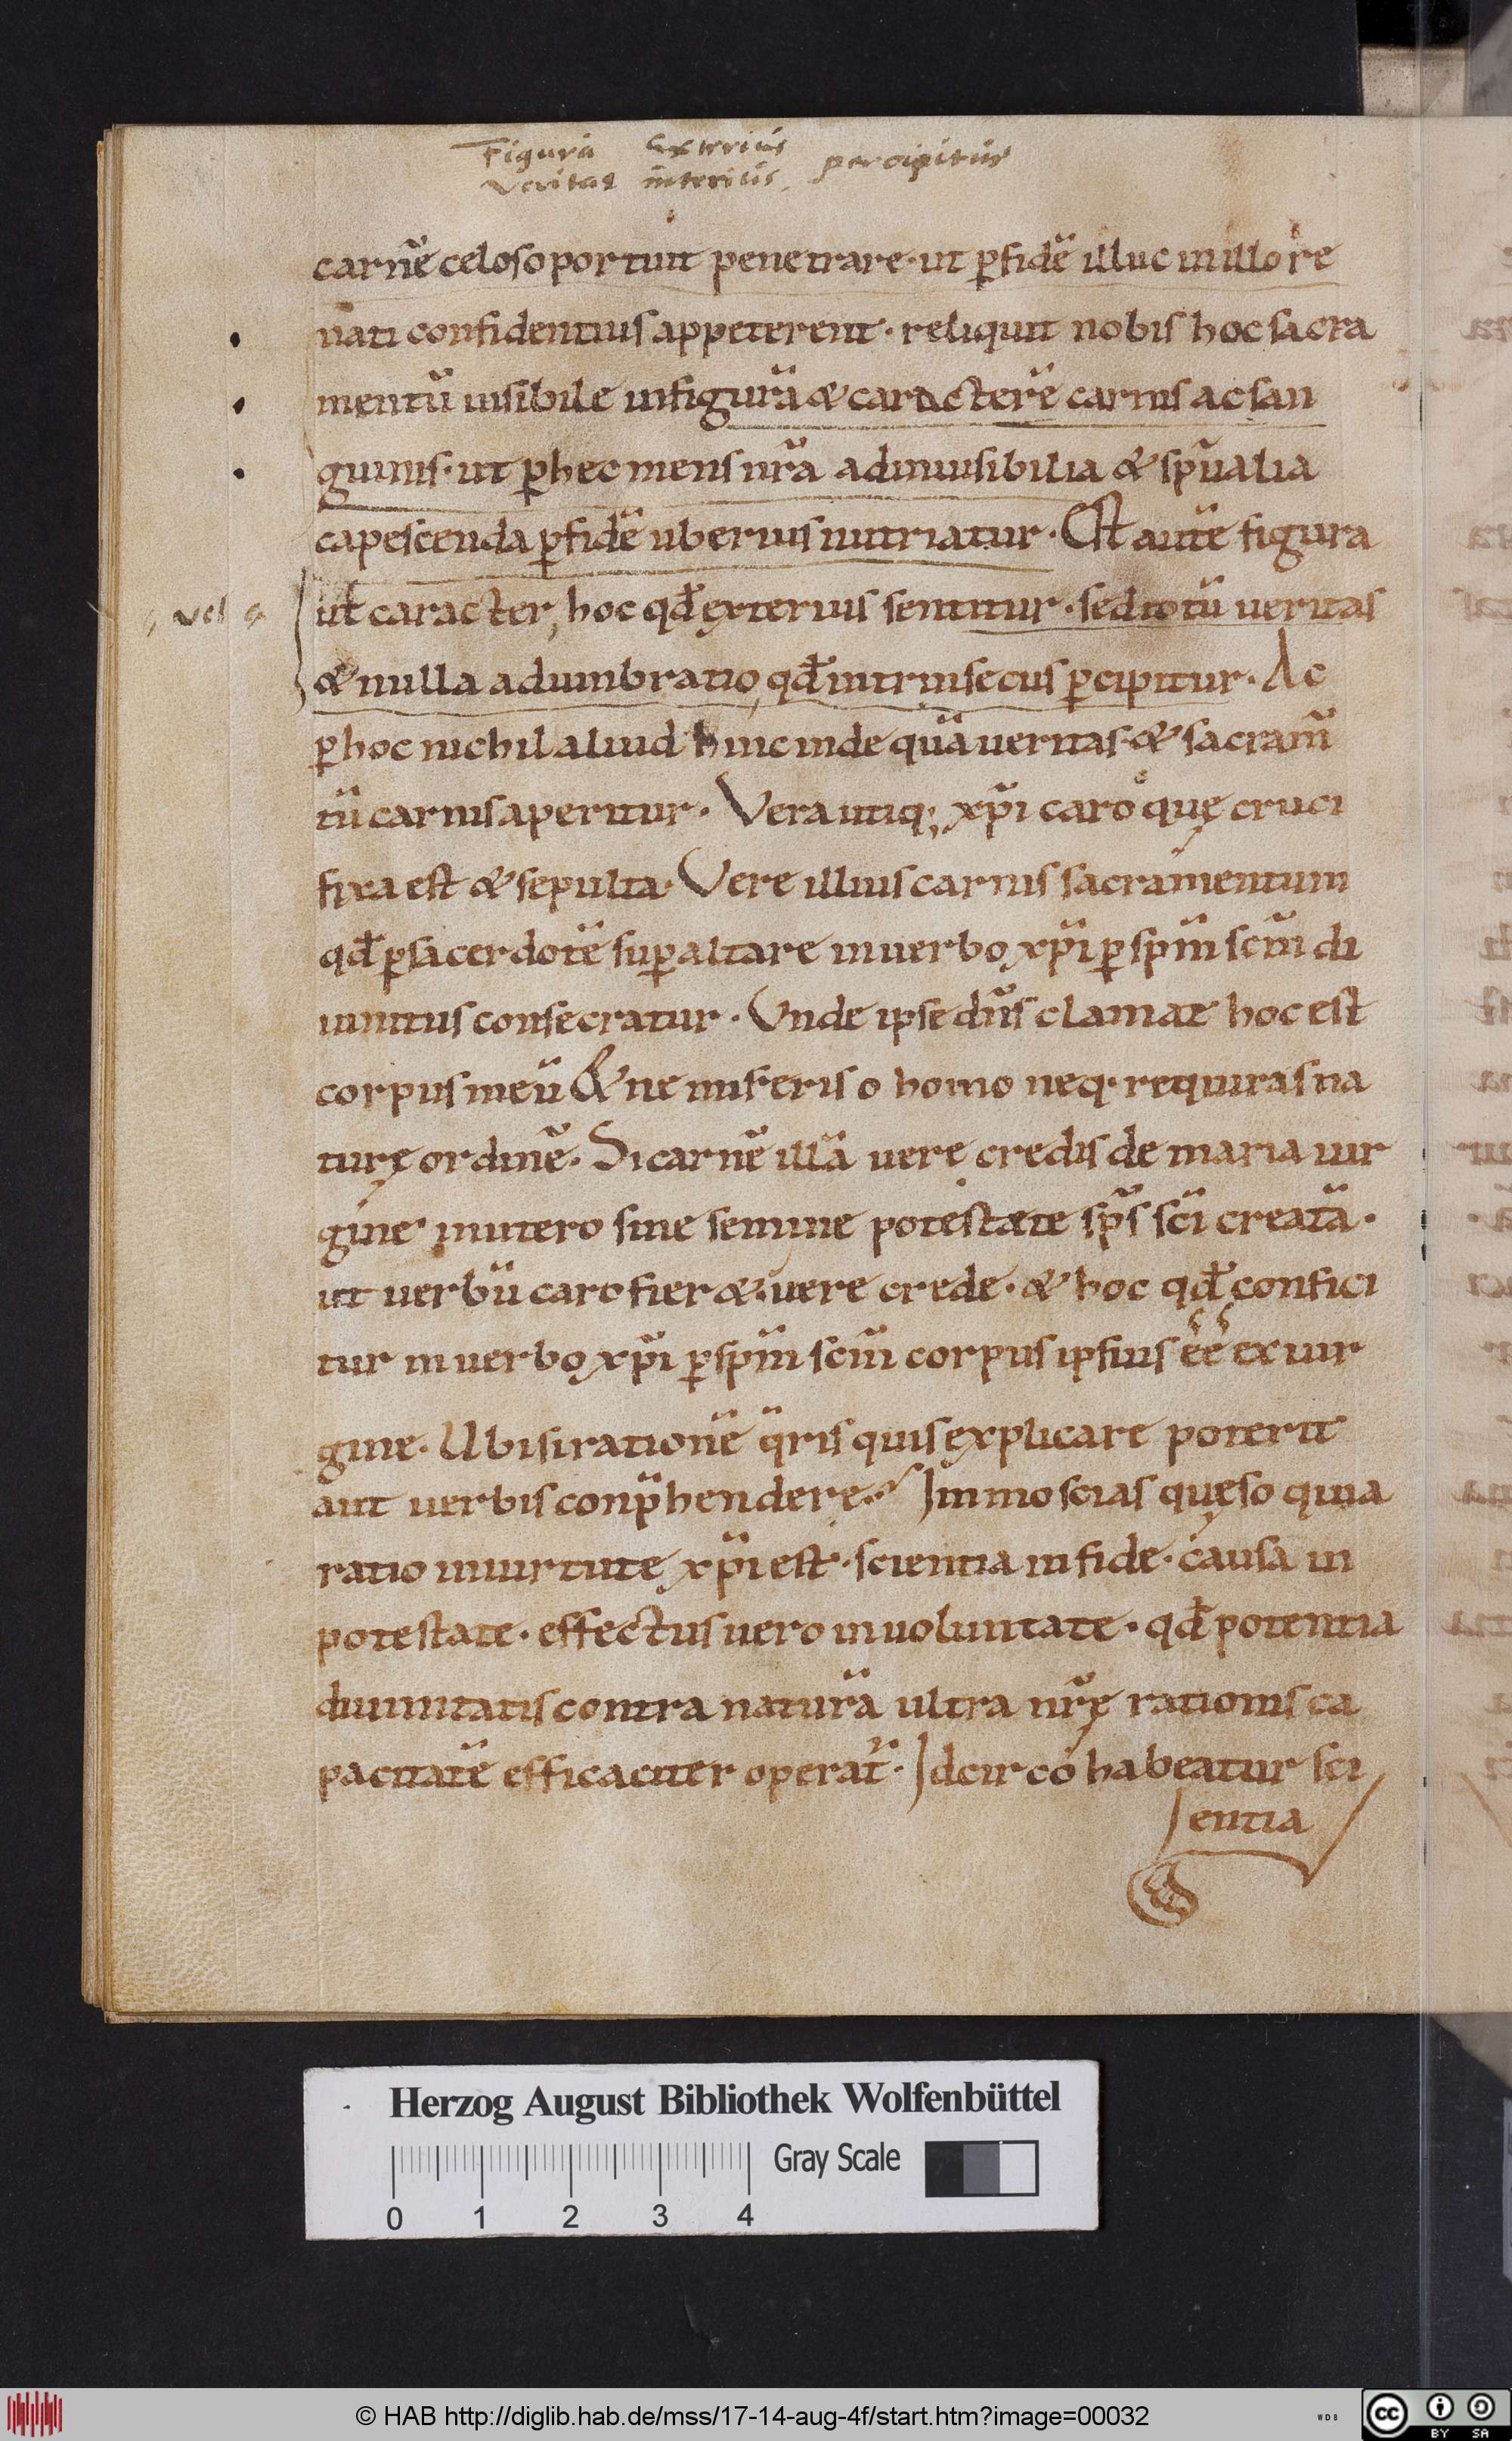 Figura exterius percipitur
veritas interius.
carnē celos oportuit penetrare· ut ꝑ fidē illuc in illo re
nati confidentius appeterent· reliquit nobis hoc sacra
mentū uisibile in figurā & caracterē carnis ac san
guinis· ut ꝑ hec mens nr̄a ad inuisibilia & sp̄ualia
capescenda ꝑ fidē uberius nutriatur· Est autē figura
vel
ut caracter, hoc qđ exterius sentitur· sed totū ueritas
& nulla adumbratio, qđ intrinsecus ꝑcipitur· Ac
ꝑ hoc nichil aliud hinc inde quā ueritas & sacram̄
tū carnis aperitur· Vera utiq; xp̄i caro quę cruci
fixa est & sepulta· Vere illius carnis sacramentum
qđ ꝑ sacerdotē suꝑ altare in uerbo xp̄i ꝑ sp̄m scm̄ di
uinitus consecratur· Vnde ipse dn̄s clamat hoc est
corpus meū & ne mireris o homo neq· requiras na
turę ordinē· Si carnē illā uere credis de maria uir
gine in utero sine semine potestate sp̄s sc̄i creatā·
ut uerbū caro fier&· uere crede· & hoc qđ confici
tur in uerbo xp̄i ꝑ sp̄m scm̄ corpus ipsius ēē ex uir
gine· Ubi si rationē q̄ris quis explicare poterit
aut uerbis conp̄hendere? Immo scias quęso quia
ratio in uirtute xp̄i est· scientia in fide· causa in
potestate· effectus uero in uoluntate· qđ potentia
diuinitatis contra naturā ultra nr̄ę rationis ca
pacitatē efficaciter operat̄· Idcirco habeatur sci
entia
Herzog August Bibliothek Wolfenbüttel
0 1 2 3 4 Gray Scale
© HAB http://diglib.hab.de/mss/17-14-aug-4f/start.htm?image=00032
WDB
cc BY SA